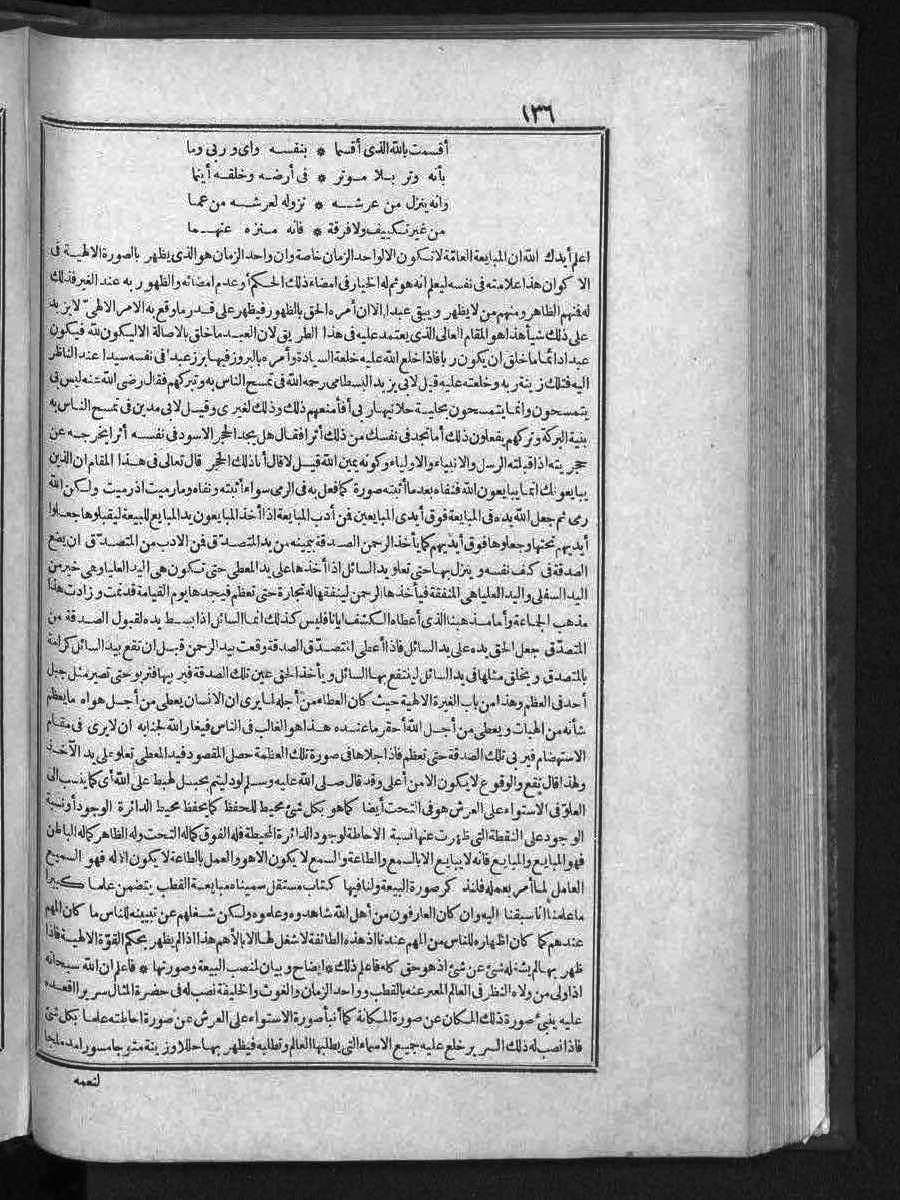 ١٣٦
أقسمت بالله الذى أقسما * بنفسه واى وربى وما
بأنه وتر بلا موتر * فى أرضه وخلقه أينما
وانه ينزل من عرشه * نزوله لعرشه من عما
من غير تكييف ولا فرقة * فانه منزه عنهما
اعلم أيدك الله ان المبايعة العامّة لا تكون الا لواحد الزمان خاصة وان واحد الزمان هو الذى يظهر بالصورة الالهية فى
الاكوان هذا علامته فى نفسه ليعلم انه هو ثم له الخيار فى امضاء ذلك الحكم أو عدم امضائه والظهور به عند الغير فذلك
له فنهم الظاهر ومنهم من لا يظهر ويبقى عبدا الا ان أمره الحق بالظهور فيظهر على قدر ما وقع به الامر الالهى لا يزيد
على ذلك شيأ هذا هو المقام العالى الذى يعتمد عليه فى هذا الطريق لان العبد ما خلق بالاصالة الا ليكون لله فيكون
عبدا دائما ما خلق ان يكون ربا فاذا خلع الله عليه خلعة السيادة وأمره بالبروز فيها برز عبدا فى نفسه سيدا عند الناظر
اليه فتلك زينة ربه وخلعته عليه قيل لابى يزيد البسطامى رحمه الله فى تمسح الناس به وتبركهم فقال رضى الله عنه ليس بى
يتمسحون وانما يتمسحون بحلية حلانيها ربى أفأمنعهم ذلك وذلك لغيرى وقيل لابى مدين فى تمسح الناس به
بنية البركة وتركهم يفعلون ذلك أما تجد فى نفسك من ذلك أثرا فقال هل يجد الحجر الاسود فى نفسه أثرا يخرجه عن
حجريته اذا قبلته الرسل والانبياء والاولياء وكونه يمين الله قيل لا قال أنا ذلك الحجر قال تعالى فى هذا المقام ان الذين
يبايعونك انما يبايعون الله فنفاه بعدما أثبته صورة كما فعل به فى الرمى سواء أثبته ونفاه وما رميت اذ رميت ولكن الله
رمى ثم جعل الله يده فى المبايعة فوق أيدى المبايعين فمن أدب المبايعة اذا أخذ المبايعون يد المبايع للبيعة ليقبلوها جعلوا
أيديهم تحتها وجعلوها فوق أيديهم كما يأخذ الرحمن الصدقة بيمينه من يد المتصدّق فمن الادب من المتصدّق ان يضع
الصدقة فى كف نفسه وينزل بها حتى تعلو يد السائل اذا أخذها على يد المعطى حتى تكون هى اليد العليا وهى خير من
اليد السفلى واليد العليا هى المنفقة فيأخذها الرحمن لينفقها له تجارة حتى تعظم فيجدها يوم القيامة قد نمت وزادت هذا
مذهب الجماعة وأما مذهبنا الذى أعطاه الكشف ايانا فليس كذلك انما السائل اذا بسط يده لقبول الصدقة من
المتصدّق جعل الحق يده على يد السائل فاذا أعطى المتصدّق الصدقة وقعت بيد الرحمن قبل ان تقع بيد السائل كرامة
بالمتصدق ويخلق مثلها فى يد السائل لينتفع بها السائل ويأخذ الحق عين تلك الصدقة فيربيها فتربو حتى تصير مثل جبل
أحد فى العظم وهذا من باب الغيرة الالهية حيث كان العطاء من أجله لما يرى ان الانسان يعطى من أجل هواه ما يعظم
شأنه من الهبات ويعطى من أجل الله أحقر ما عنده هذا هو الغالب فى الناس فيغار الله لجنابه ان لا يرى فى مقام
الاستهضام فيربى تلك الصدقة حتى تعظم فاذا جلاها فى صورة تلك العظمة حصل المقصود فيد المعطى تعلو على يد الآخذ
ولهذا قال تقع والوقوع لا يكون الا من أعلى وقد قال صلى الله عليه وسلم لو دليتم بحبل لهبط على الله أى كما ينسب الى
العلو فى الاستواء على العرش هو فى التحت أيضا كما هو بكل شئ محيط للحفظ كما يحفظ محيط الدائرة الوجود أو نسبة
الوجود على النقطة التى ظهرت عنها نسبة الاحاطة لوجود الدائرة المحيطة فله الفوق كما له التحت وله الظاهر كما له الباطن
فهو المبايع والمبايع فانه لا يبايع الا بالسمع والطاعة والسمع لا يكون الا هو والعمل بالطاعة لا يكون الا له فهو السميع
العامل لما أمر بعمله فلنذكر صورة البيعة ولنا فيها كتاب مستقل سميناه مبايعة القطب يتضمن علما كبيرا
ما علمنا انا سبقنا اليه وان كان العارفون من أهل الله شاهدوه وعلموه ولكن شغلهم عن تبيينه للناس ما كان المهم
عندهم كما كان اظهاره للناس من المهم عندنا اذ هذه الطائفة لا شغل لها الا بالأهم هذا اذا لم يظهر بحكم القوّة الالهية فاذا
ظهر بها لم يشغله شئ عن شئ اذ هو حق كله فاعلم ذلك * ايضاح وبيان لنصب البيعة وصورتها * فاعلم ان الله سبحانه
اذا ولى من ولاه النظر فى العالم المعبر عنه بالقطب وواحد الزمان والغوث والخليفة نصب له فى حضرة المثال سريرا أقعده
عليه ينبئ صورة ذلك المكان عن صورة المكانة كما أنبأ صورة الاستواء على العرش عن صورة احاطته علما بكل شئ
فاذا نصب له ذلك السرير خلع عليه جميع الاسماء التى يطلبها العالم وتطلبه فيظهر بها حللا وزينة متوجا مسورا مدملجا
لتعمه